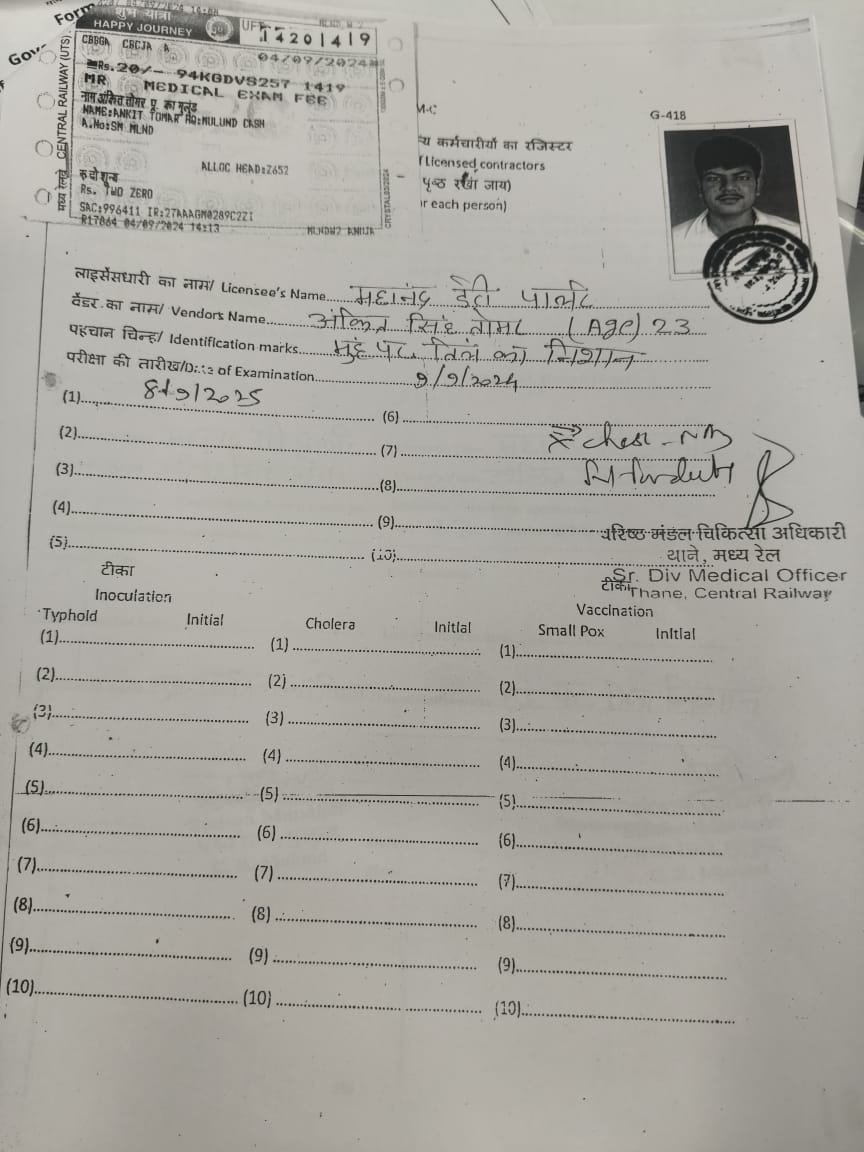 Form
Gov
शुभ यात्रा
HAPPY JOURNEY
14201419
CBBGA CBCJA A
04/09/2024
Rs.20/- 94KGDVS257 1419
MR MEDICAL EXAM FEE
NAME:ANKIT TOMAR HQ:MULUND CASH
A.No:SM MLND
ALLOC HEAD:Z652
Rs. TWO ZERO
SAC:996411 IR:27AAAGM0289C2ZI
R17864 04/09/2024 14:13
मध्य रेलवे CENTRAL RAILWAY (UTS)
M-C
G-418
कर्मचारीयों का रजिस्टर
Licensed contractors
पृष्ठ रखा जाय)
r each person)
लाइसेंसधारी का नाम/ Licensee's Name महानंद डेरी पार्लर
वेंडर का नाम/ Vendors Name अंकित सिंह तोमर (Age) 23
पहचान चिन्ह/ Identification marks मुंह पर तिल का निशान
परीक्षा की तारीख/Date of Examination 9/9/2024
(1) 8/9/2025 (6)
(2) (7)
(3) (8)
(4) (9)
(5) (10)
वरिष्ठ मंडल चिकित्सा अधिकारी
थाने, मध्य रेल
Sr. Div Medical Officer
Thane, Central Railway
टीका टीका
Inoculation Vaccination
Typhold Initial Cholera Initial Small Pox Initial
(1) (1) (1)
(2) (2) (2)
(3) (3) (3)
(4) (4) (4)
(5) (5) (5)
(6) (6) (6)
(7) (7) (7)
(8) (8) (8)
(9) (9) (9)
(10) (10) (10)